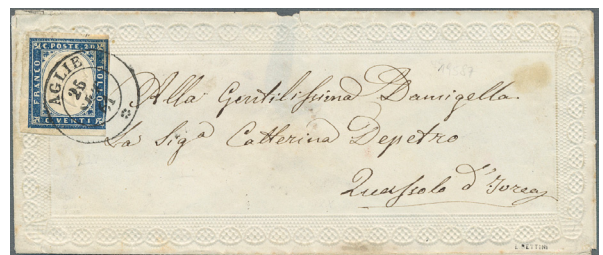 C. POSTE 20
FRANCO
BOLLO
C. VENTI
AGLIE
25
61
Alla Gentilissima Damigella
La Sig.a Catterina Depetro
Quassolo d'Ivrea
E. METTINI